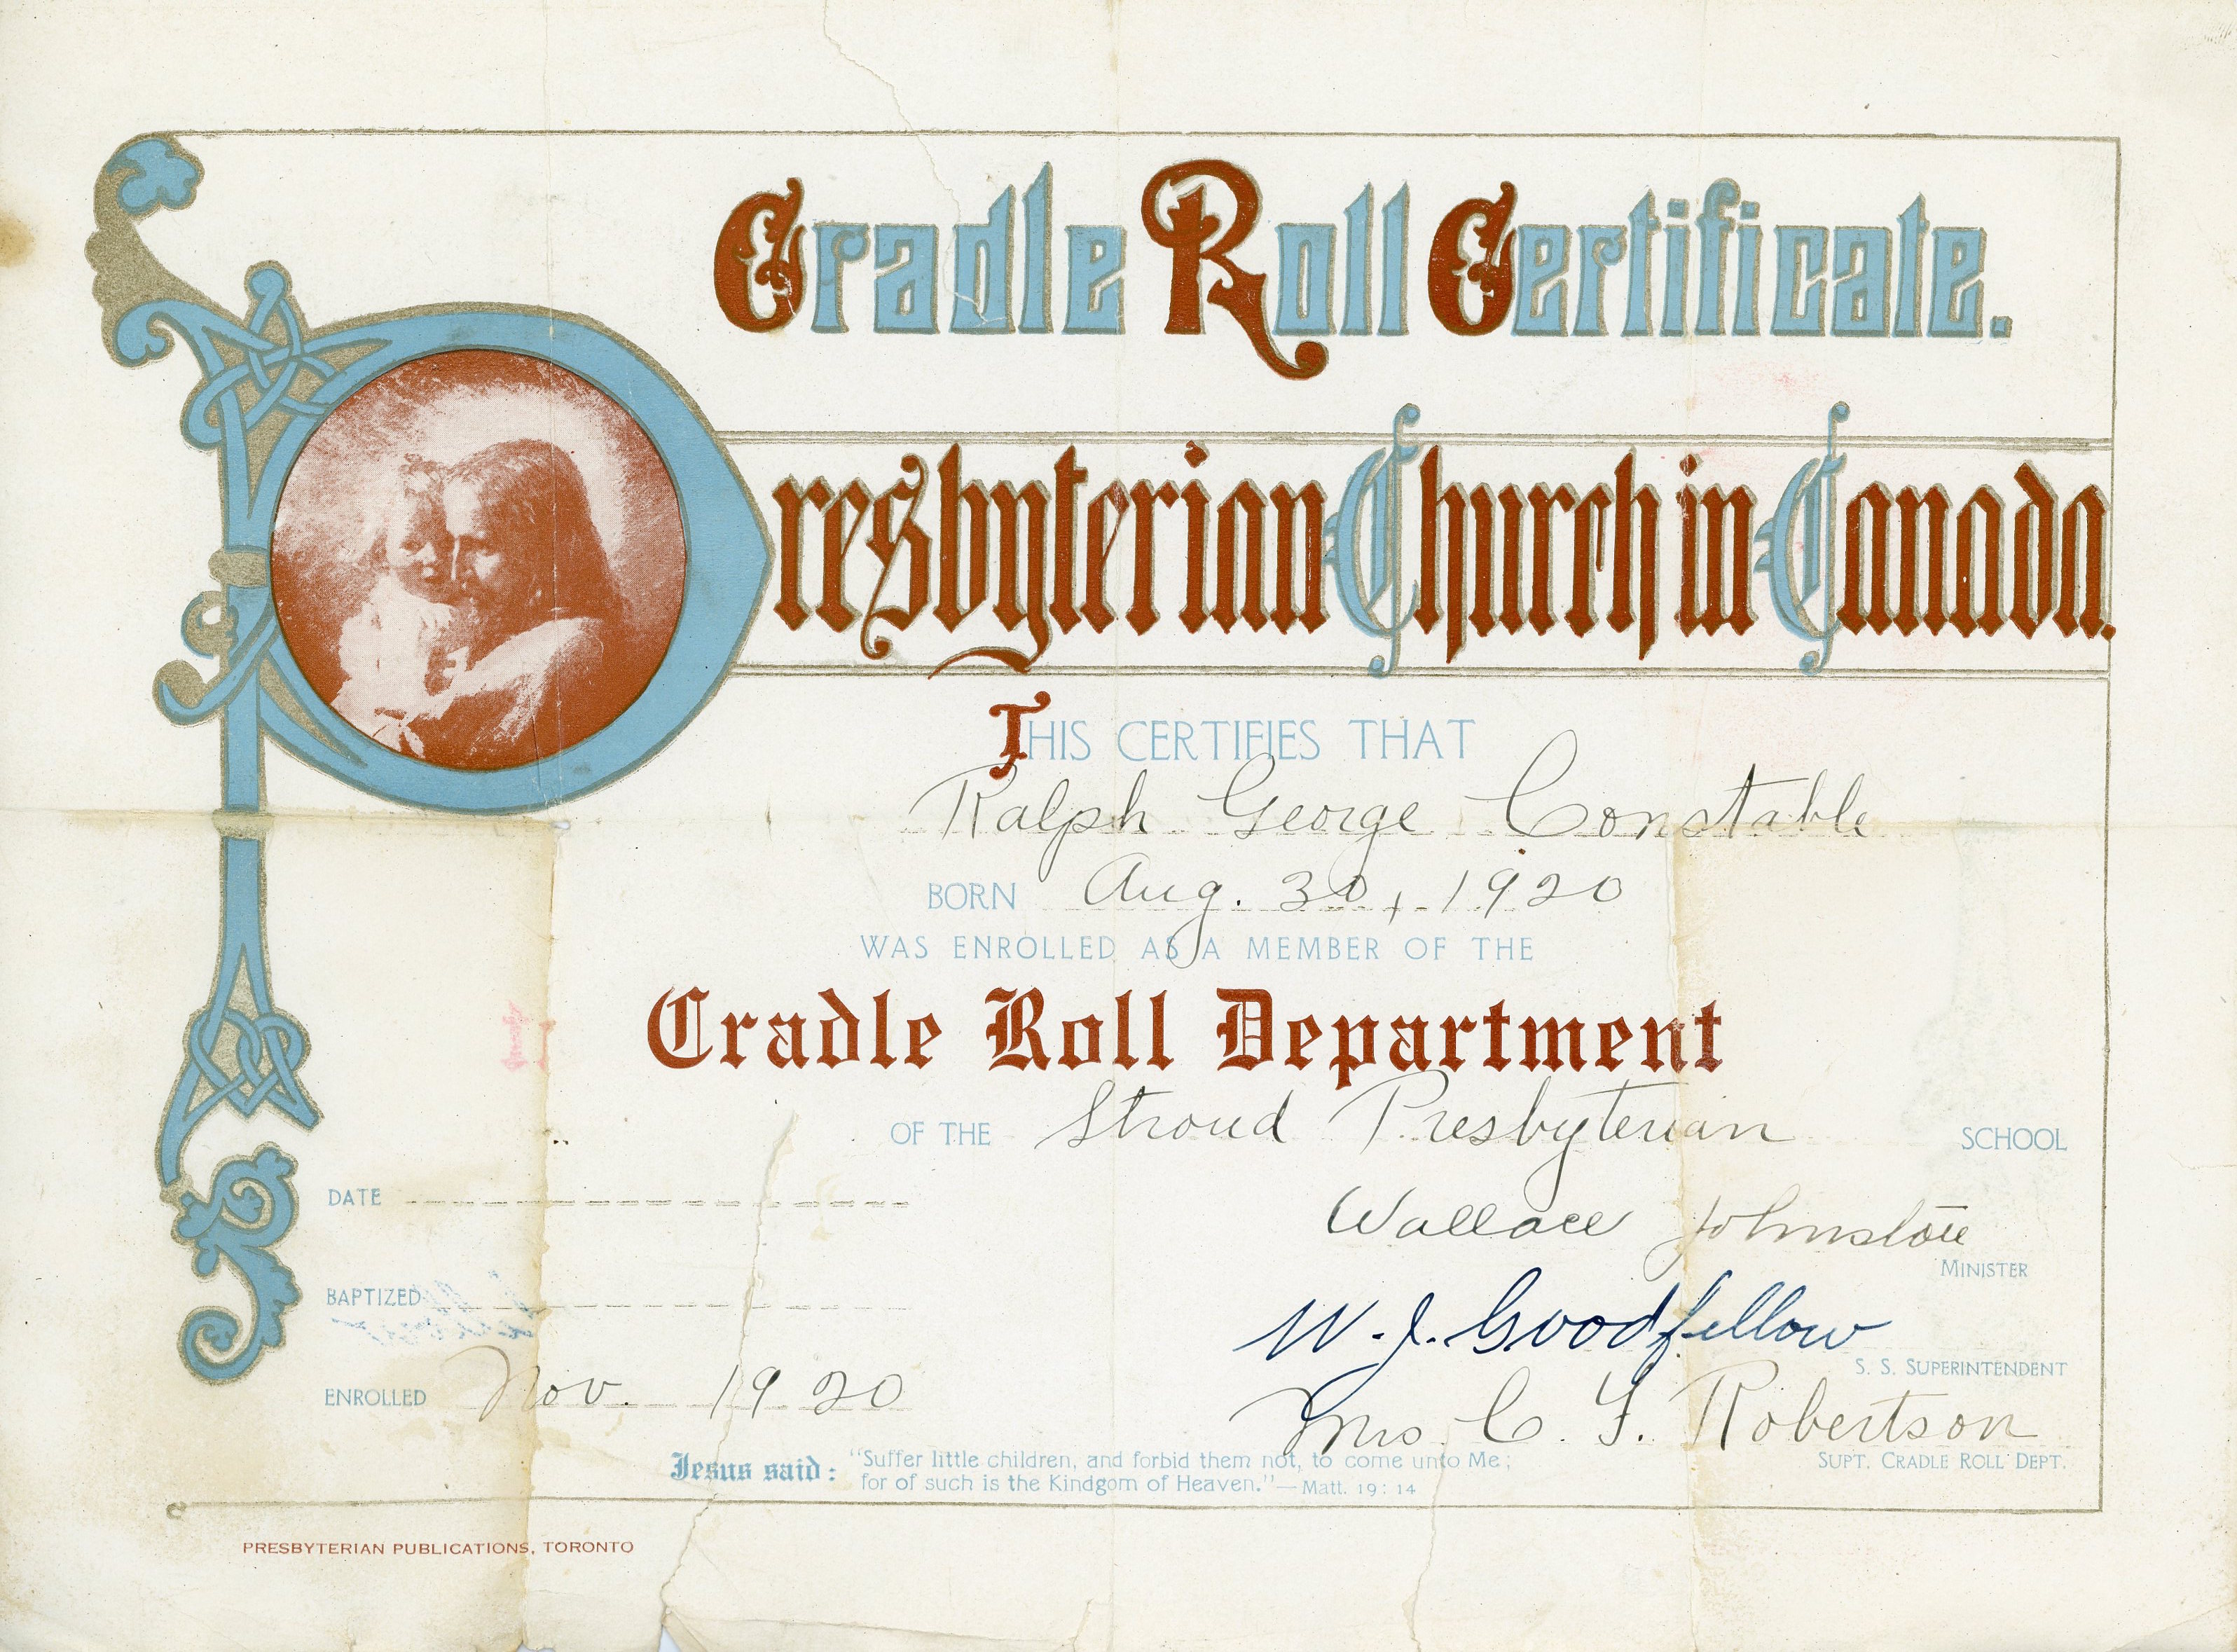 Cradle Roll Certificate.
Presbyterian Church in Canada.
THIS CERTIFIES THAT
Ralph George Constable
BORN Aug. 30, 1920
WAS ENROLLED AS A MEMBER OF THE
Cradle Roll Department
OF THE Stroud Presbyterian SCHOOL
DATE
Wallace Johnstone
MINISTER
BAPTIZED
W. J. Goodfellow
S. S. SUPERINTENDENT
ENROLLED Nov. 1920
Mrs. C. F. Robertson
SUPT. CRADLE ROLL DEPT.
Jesus said: "Suffer little children, and forbid them not, to come unto Me;
for of such is the Kindgom of Heaven."—Matt. 19:14
PRESBYTERIAN PUBLICATIONS, TORONTO